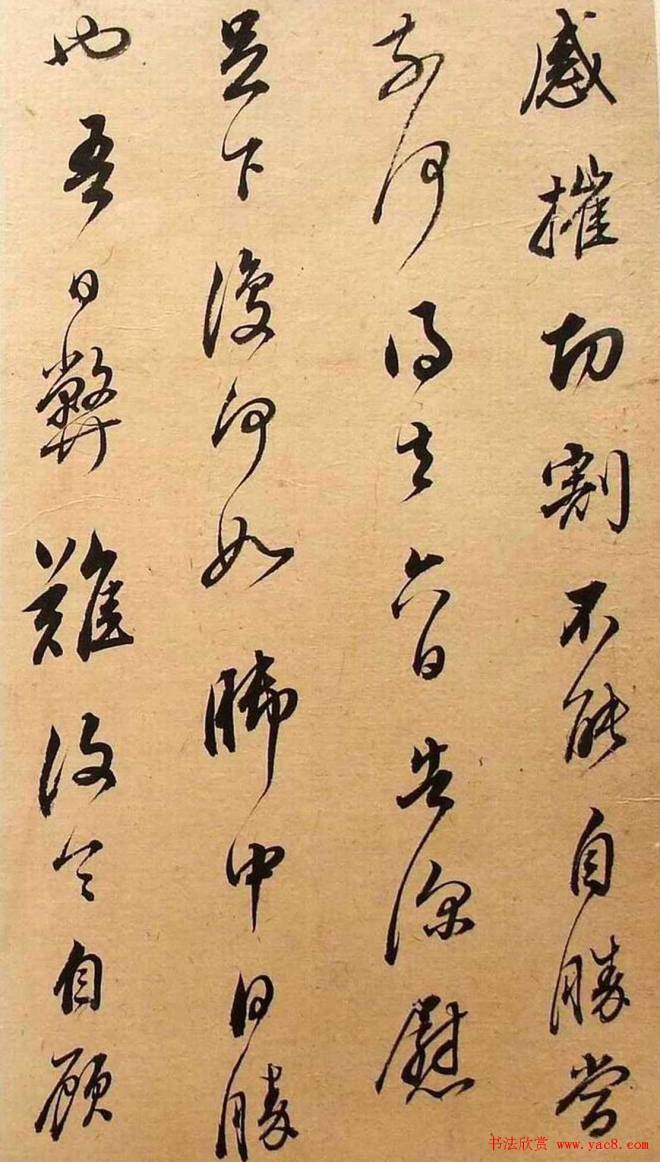 感摧切割不能自勝當
奈何得去六日告深慰
足下復何如中日勝
也吾日弊難復令自顧
书法欣赏 www.yac8.com